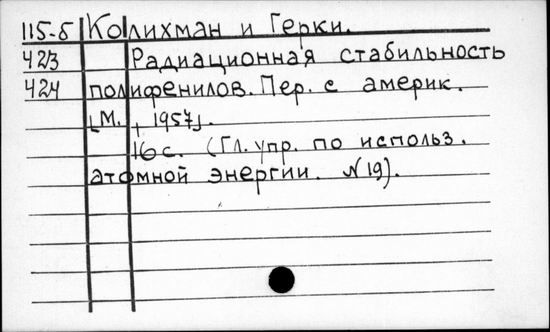 115-б Колихман и Герки.
423 Радиационная стабильность
424 полифенилов. Пер. с америк.
[М., 1957].
16 с. (Гл. упр. по использ.
атомной энергии. N 19).